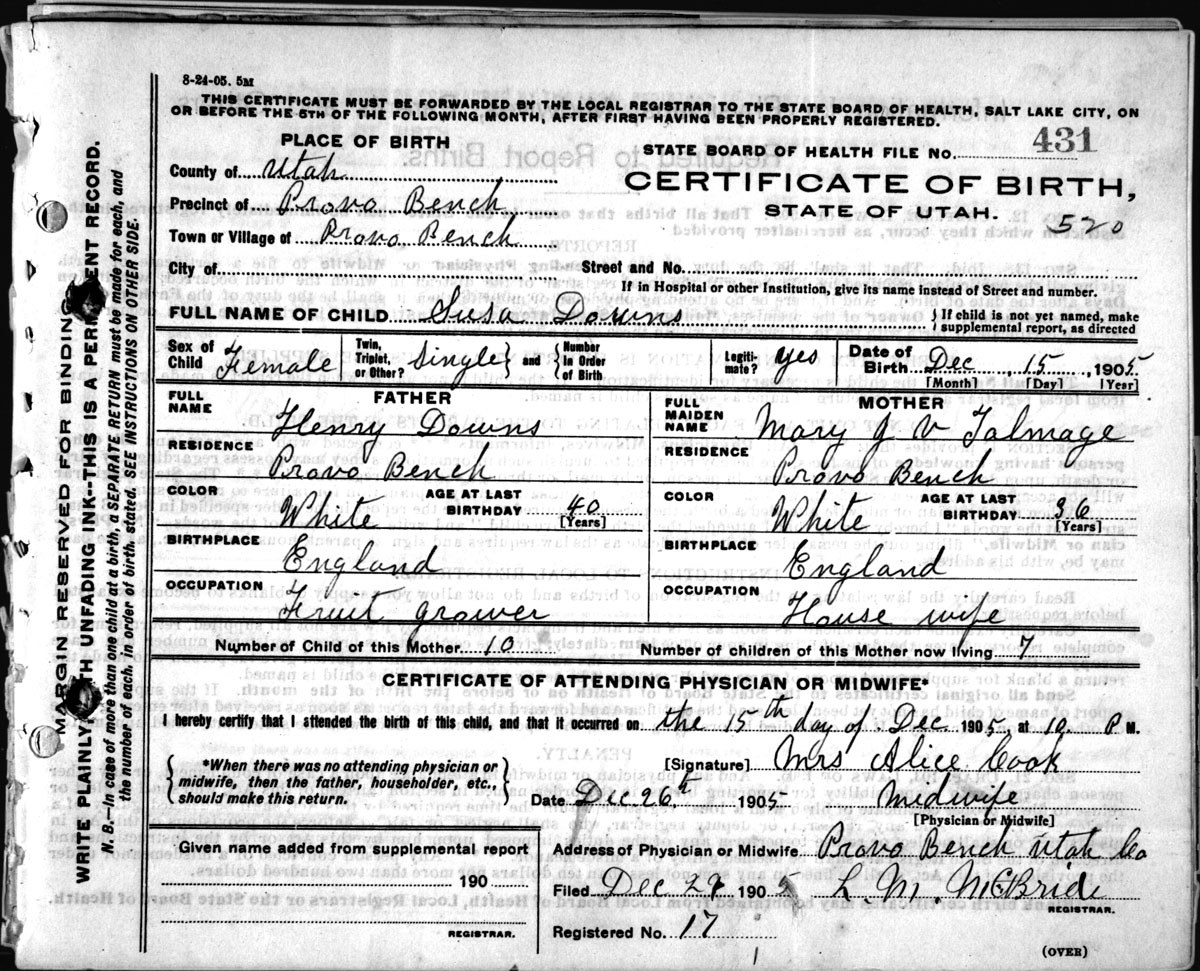 8-24-05. 5M
THIS CERTIFICATE MUST BE FORWARDED BY THE LOCAL REGISTRAR TO THE STATE BOARD OF HEALTH, SALT LAKE CITY, ON
OR BEFORE THE 5TH OF THE FOLLOWING MONTH, AFTER FIRST HAVING BEEN PROPERLY REGISTERED.
PLACE OF BIRTH
STATE BOARD OF HEALTH FILE NO. 431
County of Utah
CERTIFICATE OF BIRTH,
Precinct of Provo Bench
STATE OF UTAH.
520
Town or Village of Provo Bench
City of Street and No.
If in Hospital or other Institution, give its name instead of Street and number.
FULL NAME OF CHILD Susa Downs { If child is not yet named, make
supplemental report, as directed
Sex of Child Female Twin, Triplet, or Other? Single } and { Number In Order of Birth Legiti-mate? yes Date of Birth Dec 15, 1905
[Month] [Day] [Year]
FATHER MOTHER
FULL NAME Henry Downs FULL MAIDEN NAME Mary J V Talmage
RESIDENCE Provo Bench RESIDENCE Provo Bench
COLOR White AGE AT LAST BIRTHDAY 40 [Years] COLOR White AGE AT LAST BIRTHDAY 36 [Years]
BIRTHPLACE England BIRTHPLACE England
OCCUPATION Fruit grower OCCUPATION House wife
Number of Child of this Mother 10 Number of children of this Mother now living 7
CERTIFICATE OF ATTENDING PHYSICIAN OR MIDWIFE*
I hereby certify that I attended the birth of this child, and that it occurred on the 15th day of Dec 1905, at 10 P M.
{ *When there was no attending physician or
midwife, then the father, householder, etc.,
should make this return. }
[Signature] Mrs Alice Cook
Date Dec 26th 1905 Midwife
[Physician or Midwife]
Given name added from supplemental report
190
REGISTRAR.
Address of Physician or Midwife Provo Bench Utah Co
Filed Dec 29 1905 L. M. McBride
REGISTRAR.
Registered No. 17
(OVER)
MARGIN RESERVED FOR BINDING
WRITE PLAINLY WITH UNFADING INK--THIS IS A PERMANENT RECORD.
N. B.—In case of more than one child at a birth, a SEPARATE RETURN must be made for each, and
the number of each, in order of birth, stated. SEE INSTRUCTIONS ON OTHER SIDE.